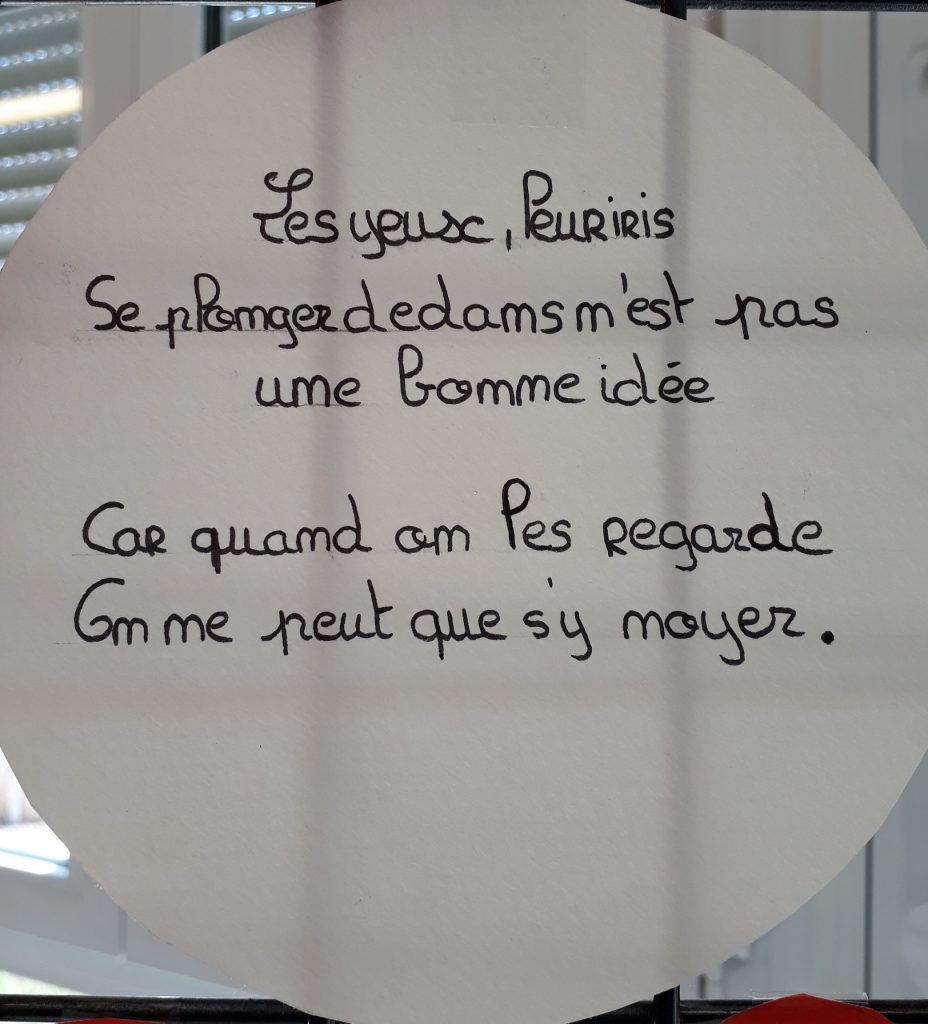 Tes yeux, leur iris
Se plonger dedans n'est pas
une bonne idée
Car quand on les regarde
On ne peut que s'y noyer.